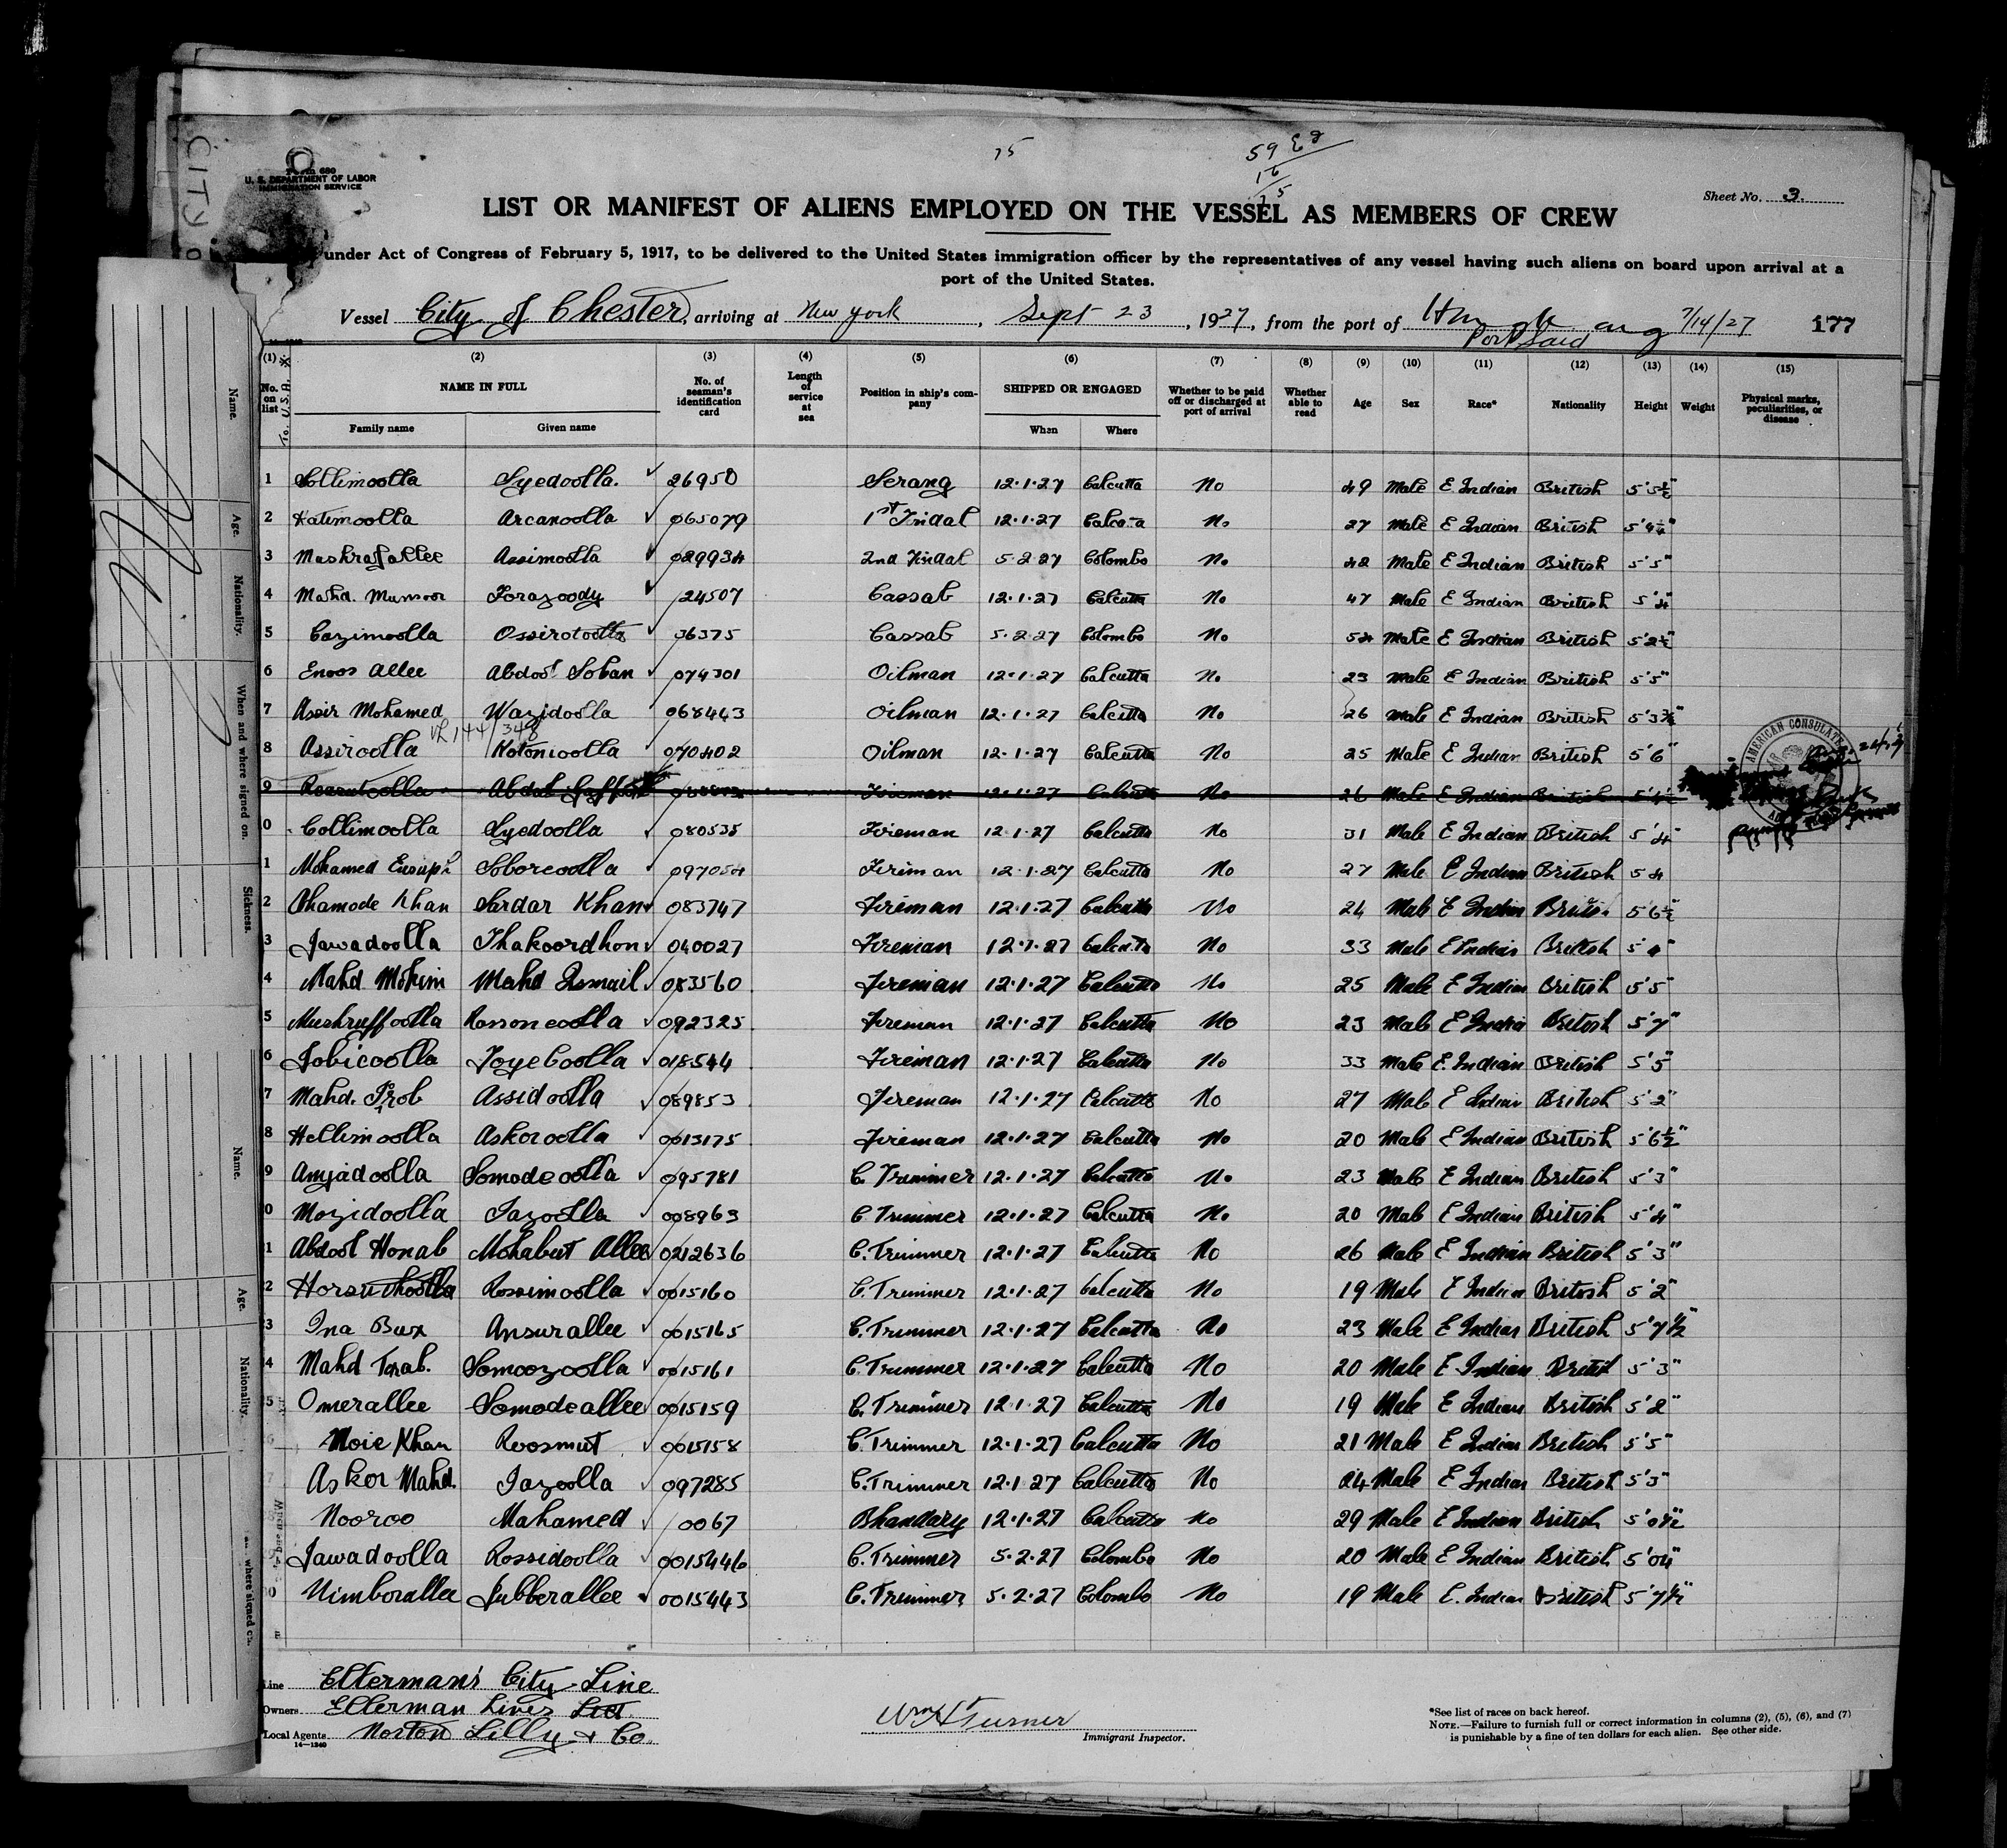 CITY O
Form 680
U. S. DEPARTMENT OF LABOR
IMMIGRATION SERVICE
75
59
16
75
Sheet No. 3.
LIST OR MANIFEST OF ALIENS EMPLOYED ON THE VESSEL AS MEMBERS OF CREW
under Act of Congress of February 5, 1917, to be delivered to the United States immigration officer by the representatives of any vessel having such aliens on board upon arrival at a
port of the United States.
Vessel City of Chester, arriving at New York, Sept 23, 1927, from the port of Port Said aug 7/14/27 177
(1) (2) (3) (4) (5) (6) (7) (8) (9) (10) (11) (12) (13) (14) (15)
No. on list To. U.S.A. NAME IN FULL No. of seaman's identification card Length of service at sea Position in ship's company SHIPPED OR ENGAGED Whether to be paid off or discharged at port of arrival Whether able to read Age Sex Race* Nationality Height Weight Physical marks, peculiarities, or disease
Family name Given name When Where
1 Sollimoolla Syedoolla. 26950 Serang 12.1.27 Calcutta No 49 Male E Indian British 5'5½"
2 Katimoolla Arcanoolla 065079 1st Tindal 12.1.27 Calcutta No 27 Male E Indian British 5'4¼"
3 Mashrafallee Assimoolla 029934 2nd Tindal 5.2.27 Colombo No 42 Male E Indian British 5'5"
4 Mahd. Munsor Forazoody 24507 Cassab 12.1.27 Calcutta No 47 Male E Indian British 5'4"
5 Cazimoolla Ossirotoolla 36375 Cassab 5.2.27 Colombo No 54 Male E Indian British 5'2½"
6 Enoos Allee Abdool Soban 074301 Oilman 12.1.27 Calcutta No 23 Male E Indian British 5'5"
7 Assir Mohamed Wazidoolla 068443 Oilman 12.1.27 Calcutta No 26 Male E Indian British 5'3½"
8 Assiroolla Kotonioolla 070402 Oilman 12.1.27 Calcutta No 25 Male E Indian British 5'6"
9 Abdul Fireman 12.1.27 Calcutta No 26 Male E Indian British 5'4½"
AMERICAN CONSULATE
0 Collimoolla Syedoolla 080535 Fireman 12.1.27 Calcutta No 31 Male E Indian British 5'4"
1 Mohamed Eusuph Soboreoolla 097054 Fireman 12.1.27 Calcutta No 27 Male E Indian British 5 4
2 Ahamode Khan Sardar Khan 083747 Fireman 12.1.27 Calcutta No 24 Male E Indian British 5'6½"
3 Jawadoolla Thakoordhon 040027 Fireman 12.1.27 Calcutta No 33 Male E Indian British
4 Mahd Mohim Mahd Ismail 083560 Fireman 12.1.27 Calcutta No 25 Male E Indian British 5'5"
5 Mushruffoolla Rossoneoolla 092325 Fireman 12.1.27 Calcutta No 23 Male E Indian British 5'7"
6 Sobicoolla Toyeboolla 018544 Fireman 12.1.27 Calcutta No 33 Male E. Indian British 5'5"
7 Mahd. Irob Assidoolla 089853 Fireman 12.1.27 Calcutta No 27 Male E Indian British 5'2"
8 Hellimoolla Askoroolla 0013175 Fireman 12.1.27 Calcutta No 20 Male E Indian British 5'6½"
9 Amjadoolla Somodeoolla 095781 C. Trimmer 12.1.27 Calcutta No 23 Male E Indian British 5'3"
0 Mozidoolla Fazoolla 008963 C. Trimmer 12.1.27 Calcutta No 20 Male E Indian British 5'4"
1 Abdool Honab Mohabut Allee 0212636 C. Trimmer 12.1.27 Calcutta No 26 Male E Indian British 5'3"
2 Horsuthoolla Rossimoolla 0015160 C. Trimmer 12.1.27 Calcutta No 19 Male E Indian British 5'2"
3 Ina Bux Ansurallee 0015165 C. Trimmer 12.1.27 Calcutta No 23 Male E Indian British 5'7½"
4 Mahd Torab. Somoozoolla 0015161 C. Trimmer 12.1.27 Calcutta No 20 Male E Indian British 5'3"
5 Omerallee Somodeallee 0015159 C. Trimmer 12.1.27 Calcutta No 19 Male E Indian British 5'2"
Moie Khan Roosmut 0015158 C. Trimmer 12.1.27 Calcutta No 21 Male E Indian British 5'5"
7 Askor Mahd. Fazoolla 097285 C. Trimmer 12.1.27 Calcutta No 24 Male E Indian British 5'3"
Nooroo Mahamed 0067 Bhandary 12.1.27 Calcutta No 29 Male E Indian British 5'0½"
Jawadoolla Rossidoolla 0015446 C. Trimmer 5.2.27 Colombo No 20 Male E Indian British 5'04"
0 Nimborallee Jubberallee 0015443 C. Trimmer 5.2.27 Colombo No 19 Male E. Indian British 5'7½"
Line Ellerman's City Line
Owners Ellerman Lines Ltd.
Local Agents Norton Lilly & Co.
14—1240
Wm H Turner
Immigrant Inspector.
*See list of races on back hereof.
NOTE.—Failure to furnish full or correct information in columns (2), (5), (6), and (7)
is punishable by a fine of ten dollars for each alien. See other side.
Name.
Age.
Nationality.
When and where signed on.
Sickness.
Name.
Age.
Nationality.
where signed on.